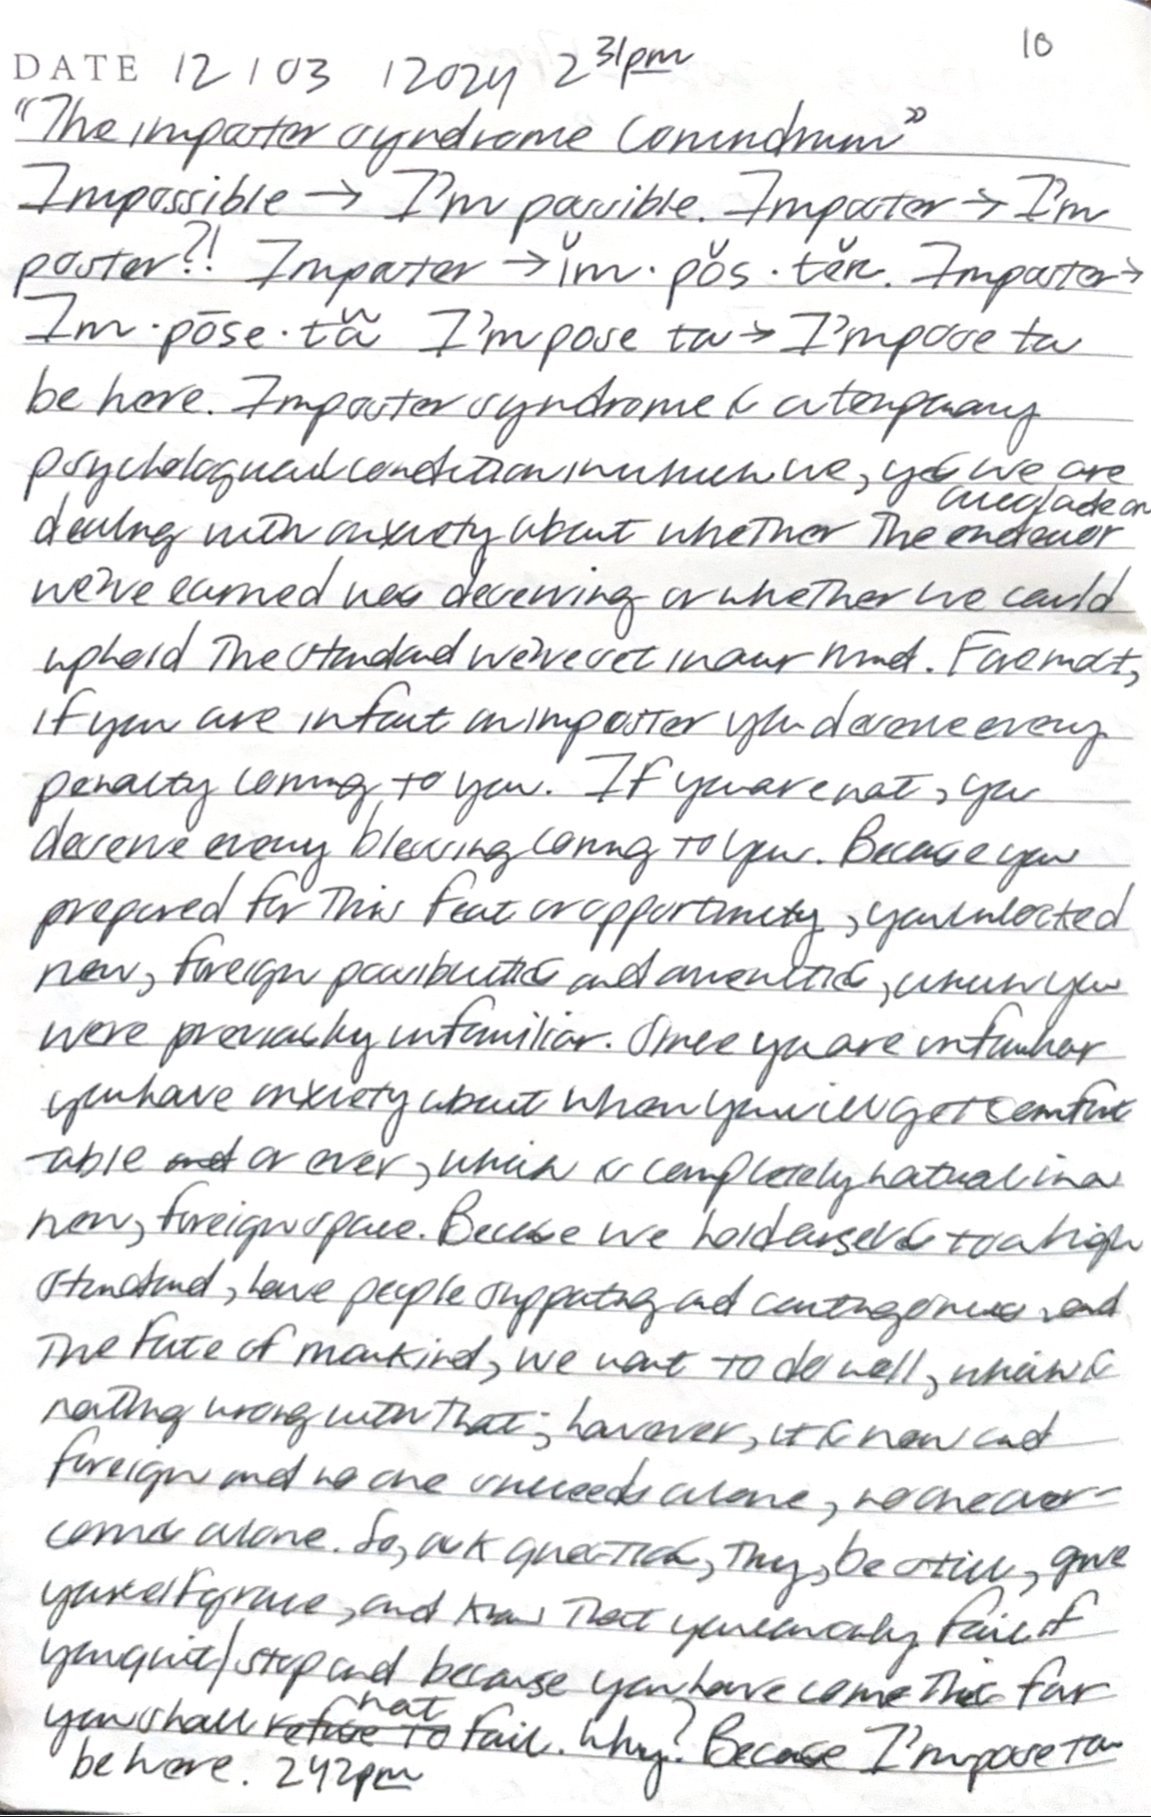 10
DATE 12 / 03 / 2024 2 31pm
"The imposter syndrome Conundrum"
Impossible → I'm possible. Imposter → I'm
poster?! Imposter → ĭm · pŏs · tĕr. Imposter →
Im · pōse · tă I'mpose ta → I'mpose ta
be here. Imposter syndrome is a temporary
psychological condition in which we, yes we are
accolade or
dealing with anxiety about whether the endeavor
we've earned was deserving or whether we could
uphold the standard we've set in our mind. Foremost,
if you are in fact an imposter you deserve every
penalty coming to you. If you are not, you
deserve every blessing coming to you. Because you
prepared for this feat or opportunity, you unlocked
new, foreign possibilities and amenities, which you
were previously unfamiliar. Since you are unfamiliar
you have anxiety about when you will get comfort
table and or ever, which is completely natural in a
new, foreign space. Because we hold ourselves to a high
standard, have people supporting and contingencies and
the fate of mankind, we want to do well, which is
nothing wrong with that; however, it is new and
foreign and no one succeeds alone, no one over-
comes alone. So, ask questions, try, be still, give
yourself grace, and know that you can only fail if
you quit/stop and because you have come this far
not
you shall refuse to fail. Why? Because I'mpose ta
be here. 242pm